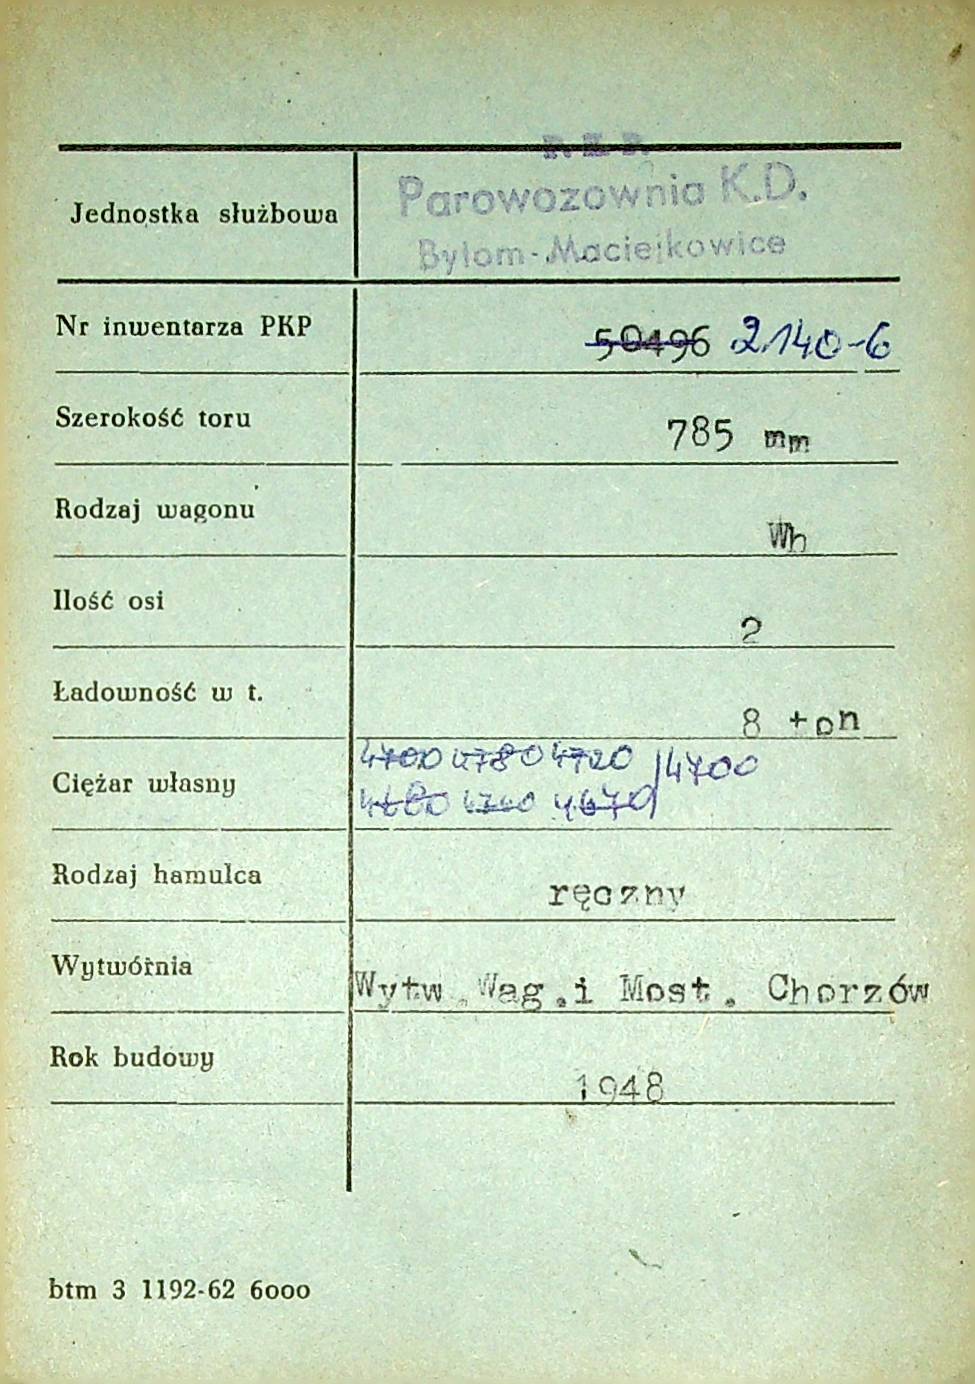 P. K. P.
Parowozownia K.D.
Jednostka służbowa
Bytom-Maciejkowice
Nr inwentarza PKP 50496 2140-6
Szerokość toru 785 mm
Rodzaj wagonu Wh
Ilość osi 2
Ładowność w t. 8 ton
4700 4780 4720 4700
Ciężar własny
4680 4740 4670
Rodzaj hamulca ręczny
Wytwórnia Wytw.Wag.i Most. Chorzów
Rok budowy 1948
btm 3 1192-62 6ooo